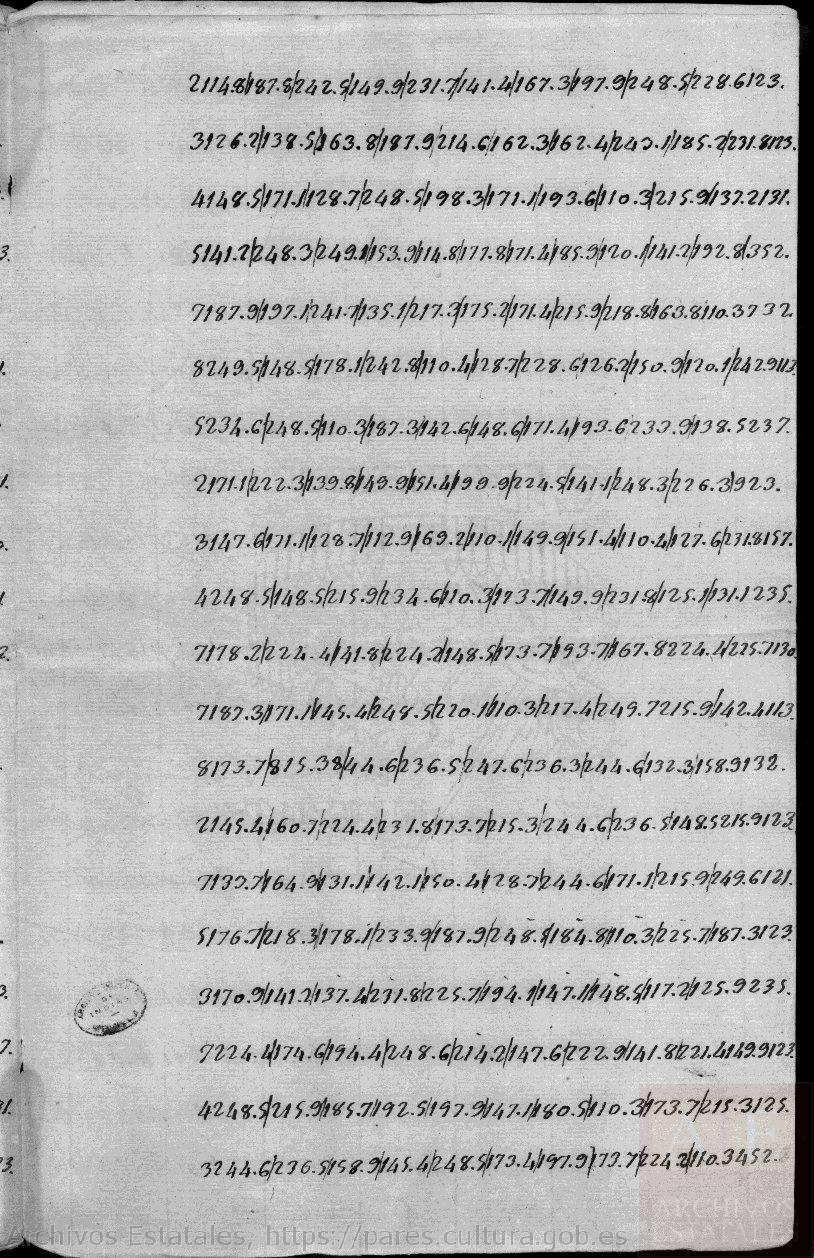 2114.8/187.8/242.5/149.9/231.7/141.4/167.3/197.9/248.5/228.6123.
3126.2/138.5/163.8/187.9/214.6/162.3/162.4/243.1/185.2/231.8123.
4148.5/171.1/128.7/248.5/198.3/171.1/193.6/110.3/215.9/137.2131.
5141.2/248.3/249.1/153.9/114.8/177.8/171.4/185.9/120.1/141.2/192.8/352.
7187.9/197.1/241.7/135.1/217.3/175.2/171.4/215.9/218.8/163.8110.3732.
8249.5/148.5/178.1/242.8/110.4/128.7/228.6126.2/150.9/120.1/242.9113.
5234.6/248.5/110.3/187.3/142.6/148.6/171.4/193.6233.9/138.5237.
2171.1/222.3/139.8/149.9/151.4/199.9/224.5/141.1/248.3/226.3/923.
3147.6/171.1/128.7/112.9/169.2/110.1/149.9/151.4/110.4/127.6/231.8157.
4248.5/148.5/215.9/234.6/110.3/173.7/149.9/231.8/125.1/131.1235.
7178.2/224.4/141.8/224.2/148.5/173.7/193.7/167.8224.4/225.7130
7187.3/171.1/145.4/248.5/220.1/110.3/217.4/249.7215.9/142.4113.
8173.7/815.38/44.6/236.5/247.6/236.3/244.6/132.3/158.9132.
2145.4/160.7/224.4/231.8/173.7/215.3/244.6/236.5/148.5215.9123.
7139.7/164.9/131.1/142.1/150.4/128.7/244.6/171.1/215.9/249.6121.
5176.7/218.3/178.1/233.9/187.9/248.5/184.8/110.3/225.7/187.3123.
3170.9/141.2/137.4/231.8/225.7/194.1/147.1/148.5/117.2/125.9235.
7224.4/174.6/194.4/248.6/214.2/147.6/222.9/141.8/221.4149.9123.
4248.5/215.9/185.7/192.5/197.9/147.1/180.5/110.3/173.7/215.3125.
3244.6/236.5/158.9/145.4/248.5/173.4/197.9/173.7/224.2/110.3452.
Archivos Estatales, https://pares.cultura.gob.es
ARCHIVOS
ESTATALES